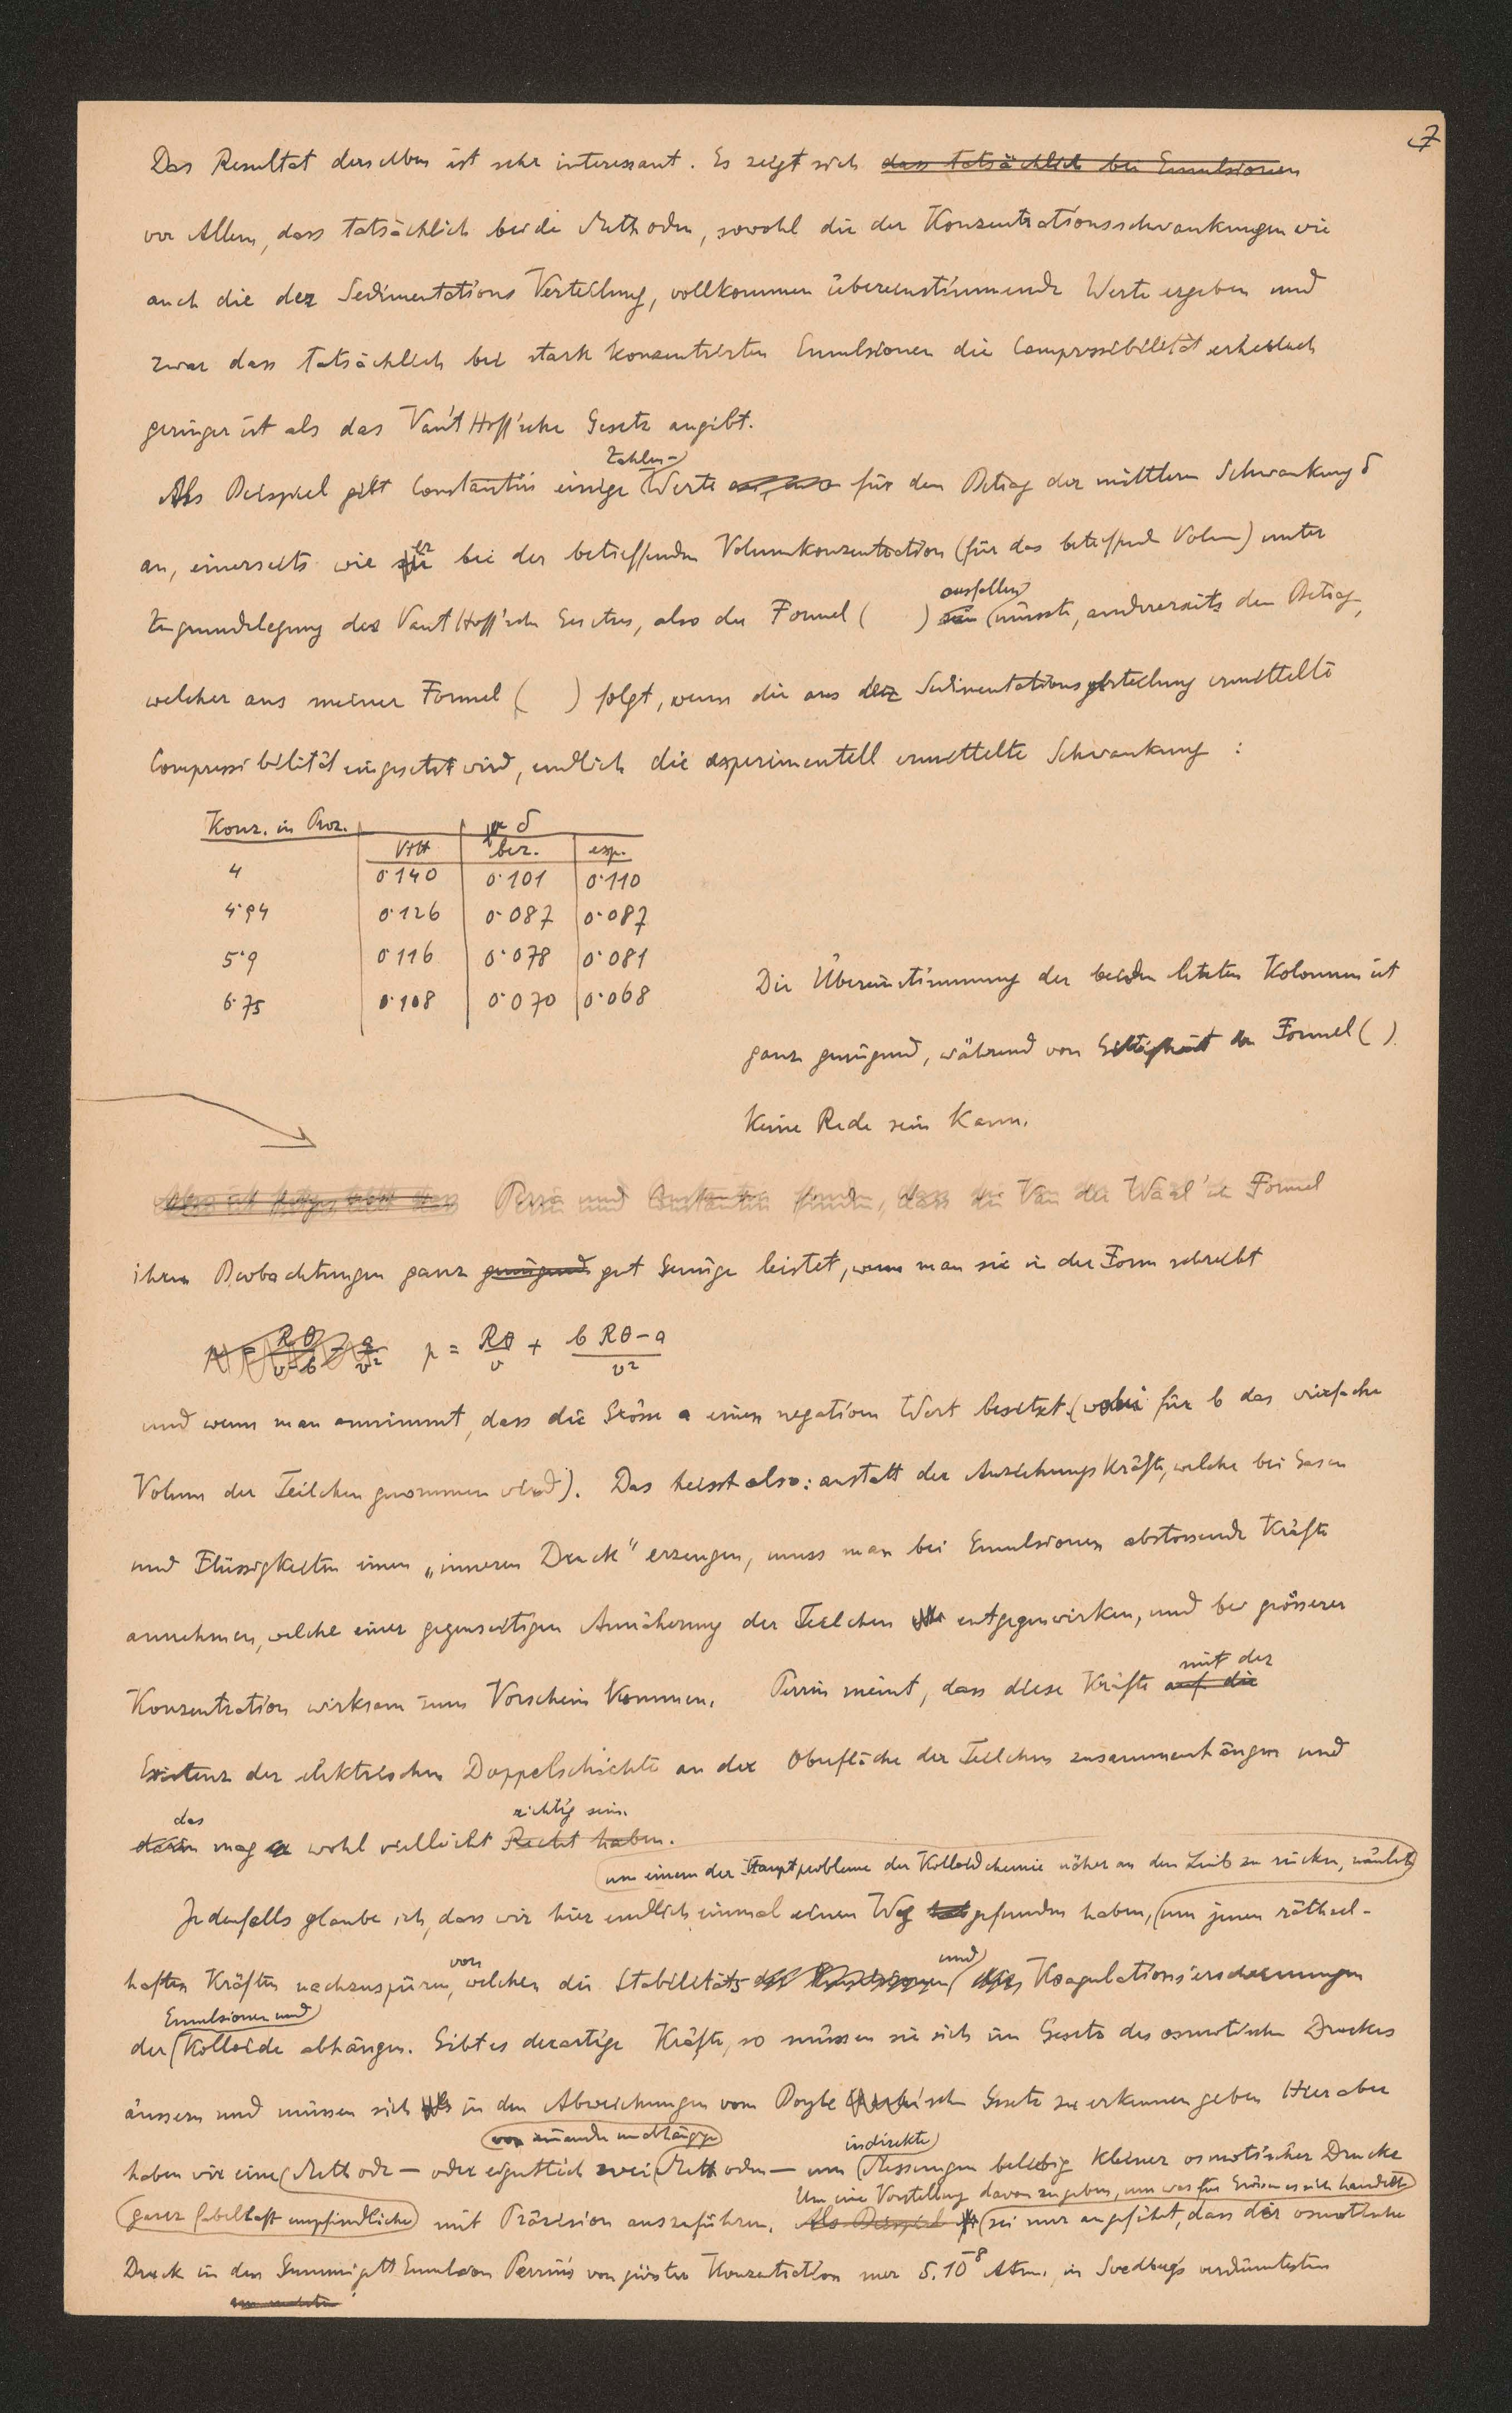 7
Das Resultat derselben ist sehr interessant. Es zeigt sich dass tatsächlich bei Emulsionen
vor Allem, dass tatsächlich beide Methoden, sowohl die der Konzentrationsschwankungen wie
auch die der Sedimentations Verteilung, vollkommen übereinstimmende Werte ergeben und
zwar dass tatsächlich bei stark konzentrierten Emulsionen die Compressibilität erheblich
geringer ist als das Van't Hoff'sche Gesetz angibt.
Zahlen-
Als Beispiel gibt Constantin einige Werte für den Betrag der mittleren Schwankung δ
er
an, einerseits wie bei der betreffenden Volumkonzentration (für das betreffende Volum) unter
ausfallen
Zugrundelegung des Van't Hoff'schen Gesetzes, also der Formel ( ) sein müsste, andererseits den Betrag,
welcher aus meiner Formel ( ) folgt, wenn die aus der Sedimentationsverteilung ermittelte
Compressibilität eingesetzt wird, endlich die experimentell ermittelte Schwankung :
Konz. in Proz. δ
VtH ber. exp.
4 0·140 0·101 0·110
4·94 0·126 0·087 0·087
5·9 0·116 0·078 0·081
6·75 0·108 0·070 0·068
Die Übereinstimmung der beiden letzten Kolonnen ist
ganz genügend, während von Gültigkeit der Formel ( )
keine Rede sein kann.
Perrin und Constantin finden, dass die Van der Waal'sche Formel
ihren Beobachtungen ganz genügend gut Genüge leistet, wenn man sie in der Form schreibt
p = Rθ/(v-b) - a/v² p = Rθ/v + (b Rθ - a)/v²
und wenn man annimmt, dass die Grösse a einen negativen Wert besitzt (wobei für b das vierfache
Volum der Teilchen genommen wird). Das heisst also: anstatt der Anziehungskräfte, welche bei Gasen
und Flüssigkeiten einen „inneren Druck" erzeugen, muss man bei Emulsionen abstossende Kräfte
annehmen, welche einer gegenseitigen Annäherung der Teilchen entgegenwirken, und bei grösserer
mit der
Konzentration wirksam zum Vorschein kommen. Perrin meint, dass diese Kräfte auf die
Existenz der elektrischen Doppelschichte an der Oberfläche der Teilchen zusammenhängen und
das richtig sein.
darin mag er wohl vielleicht Recht haben.
um einem der Hauptprobleme der Kolloidchemie näher an den Leib zu rücken, nämlich
Jedenfalls glaube ich, dass wir hier endlich einmal einen Weg gefunden haben, um jenen räthsel-
von und
haften Kräften nachzuspüren, welchen die Stabilitäts der Emulsionen Koagulationserscheinungen
Emulsionen und
der Kolloide abhängen. Gibt es derartige Kräfte, so müssen sie sich im Gesetz des osmotischen Druckes
äussern und müssen sich in den Abweichungen vom Boyle'schen Gesetz zu erkennen geben Hier aber
von einander unabhängige indirekte
haben wir eine Methode — oder eigentlich zwei Methoden — um Messungen beliebig kleiner osmotischer Drucke
Um eine Vorstellung davon zu geben, um was für Grössen es sich handelt
ganz fabelhaft empfindliche mit Präzision auszuführen. Als Beispiel sei nur angeführt, dass der osmotische
Druck in der Gummigutt Emulsion Perrin's von grösster Konzentration nur 5.10⁻⁸ Atm., in Svedbergs verdünntesten